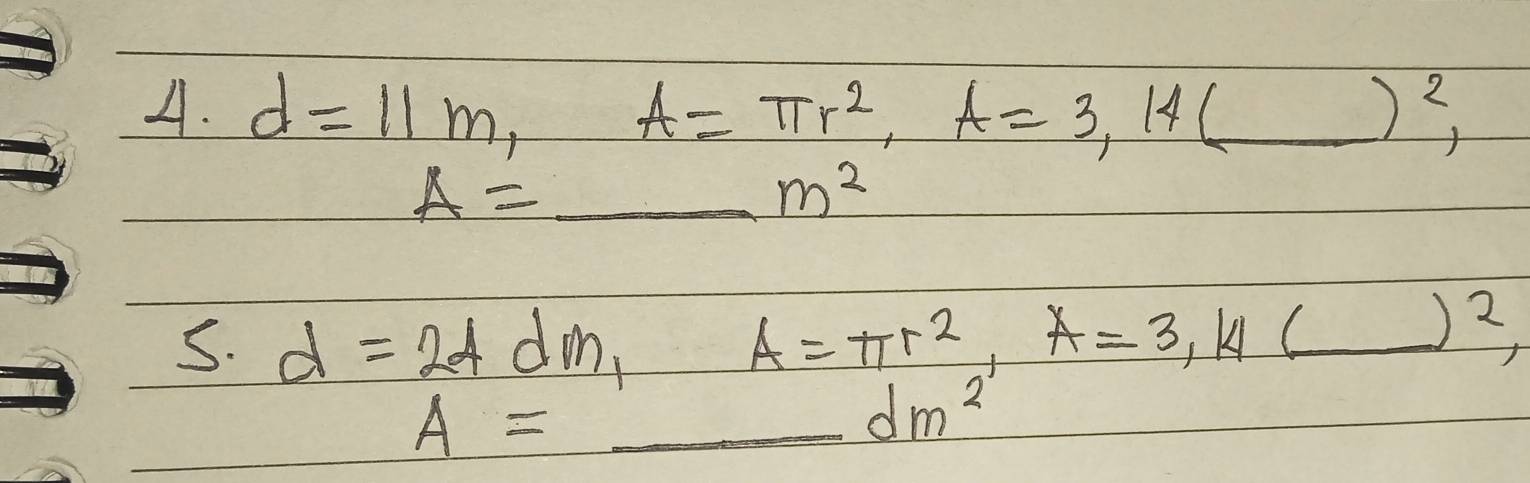 4. d = 11 m, A = πr², A = 3,14(____)²,
A = ____ m²
5. d = 24 dm, A = πr², A = 3,14 (____)²,
A = ____ dm²